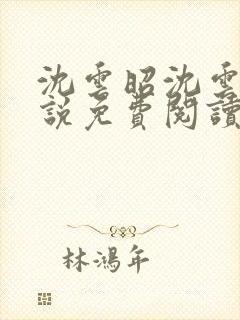 沈雲昭沈雲
說免費閱讀
林鴻年